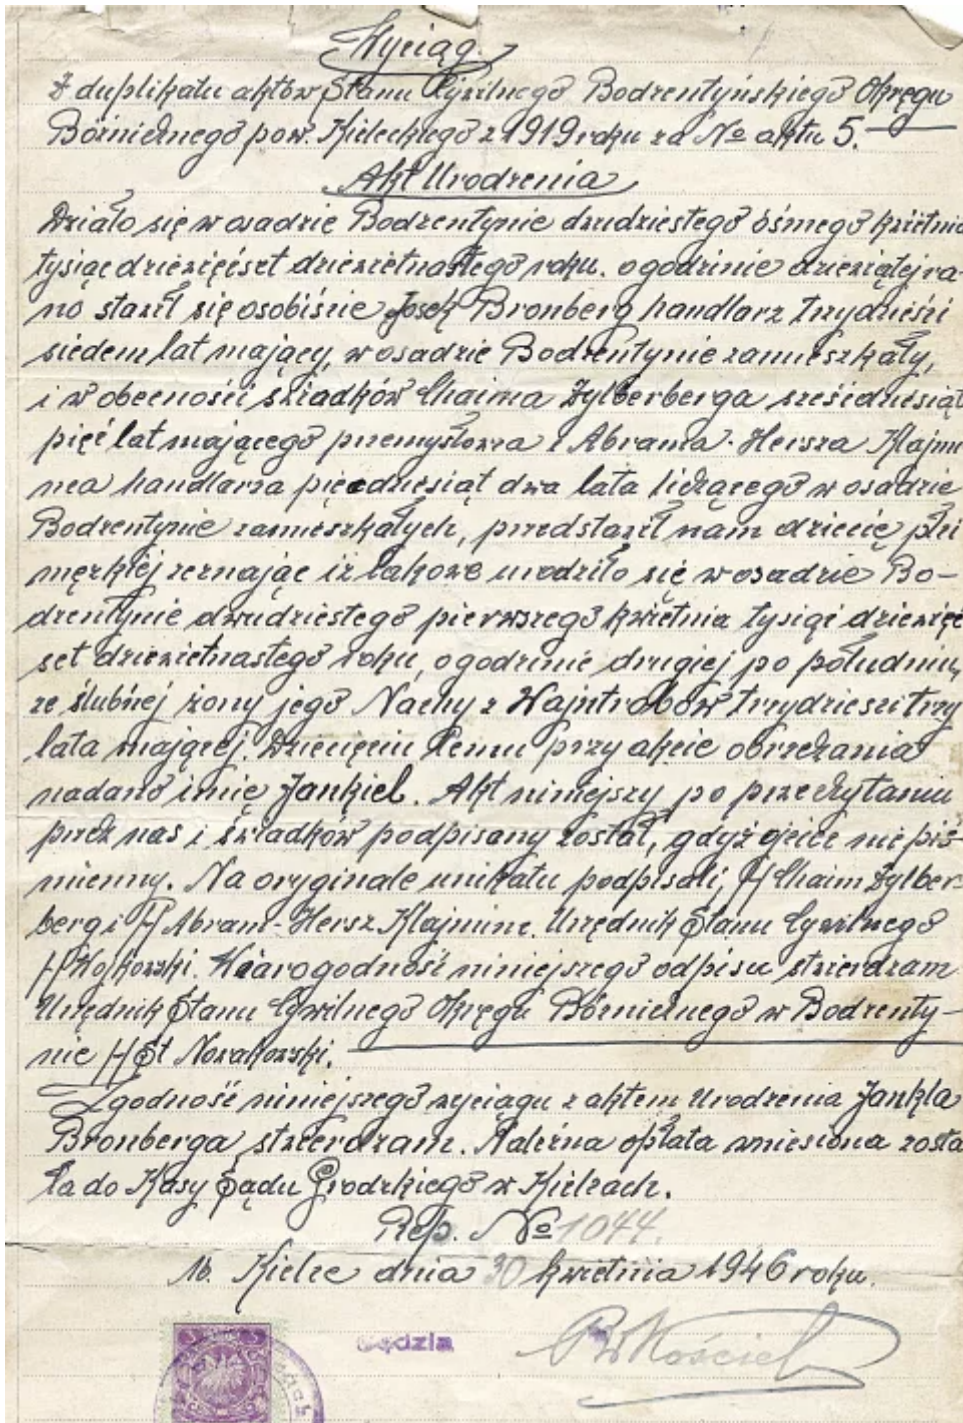 Wyciąg.
z duplikatu aktów Stanu Cywilnego Bodzentyńskiego Okręgu
Bóżnicznego pow. Kieleckiego z 1919 roku za № aktu 5.
Akt Urodzenia
Działo się w osadzie Bodzentynie dwudziestego ósmego kwietnia
tysiąc dziewięćset dziewietnastego roku. o godzinie dziewiątej ra-
no stawił się osobiście Josek Bronberg handlarz trzydzieści
siedem lat mający, w osadzie Bodzentynie zamieszkały,
i w obecności świadków Chaima Zylberberga sześćdziesiąt
pięć lat mającego przemysłowca i Abrama-Hersza Klajmi
nca handlarza pięćdziesiąt dwa lata liczącego w osadzie
Bodzentynie zamieszkałych, przedstawił nam dziecię płci
męzkiej zeznając iż takowe urodziło się w osadzie Bo-
dzentynie dwudziestego pierwszego kwietnia tysiąc dziewięć
set dziewietnastego roku, o godzinie drugiej po południu,
ze ślubnej żony jego Nachy z Wajntrobów trzydzieści trzy
lata mającej. Dziecięciu temu przy akcie obrzezania
nadano imię Jankiel. Akt niniejszy po przeczytaniu
przez nas i świadków podpisany został, gdyż ojciec nie piś-
mienny. Na oryginale unikatu podpisali, /-/ Chaim Zylber-
berg i /-/ Abram-Hersz Klajminc. Urzędnik Stanu Cywilnego
/-/ Wojkowski. Wiarogodność niniejszego odpisu stwierdzam
Urzędnik Stanu Cywilnego Okręgu Bóżnicznego w Bodzenty-
nie /-/ St Nowakowski.
Zgodność niniejszego wyciągu z aktem Urodzenia Jankla
Bronberga stwierdzam. Należna opłata wniesiona zosta
ła do Kasy Sądu Grodzkiego w Kielcach.
Rep. № 1044.
m. Kielce dnia 30 kwietnia 1946 roku.
Sędzia